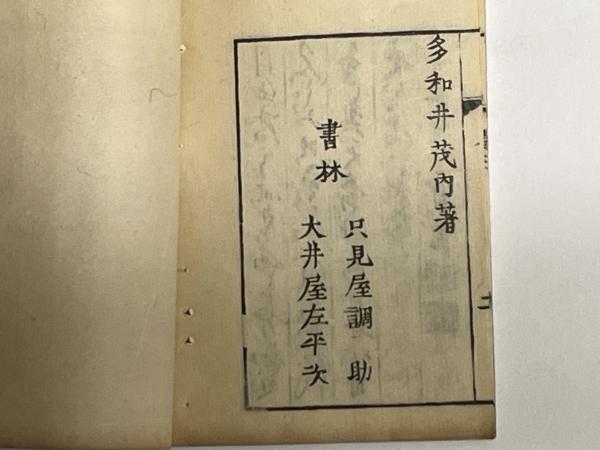 多和井茂內著
書林
只見屋調助
大井屋左平次